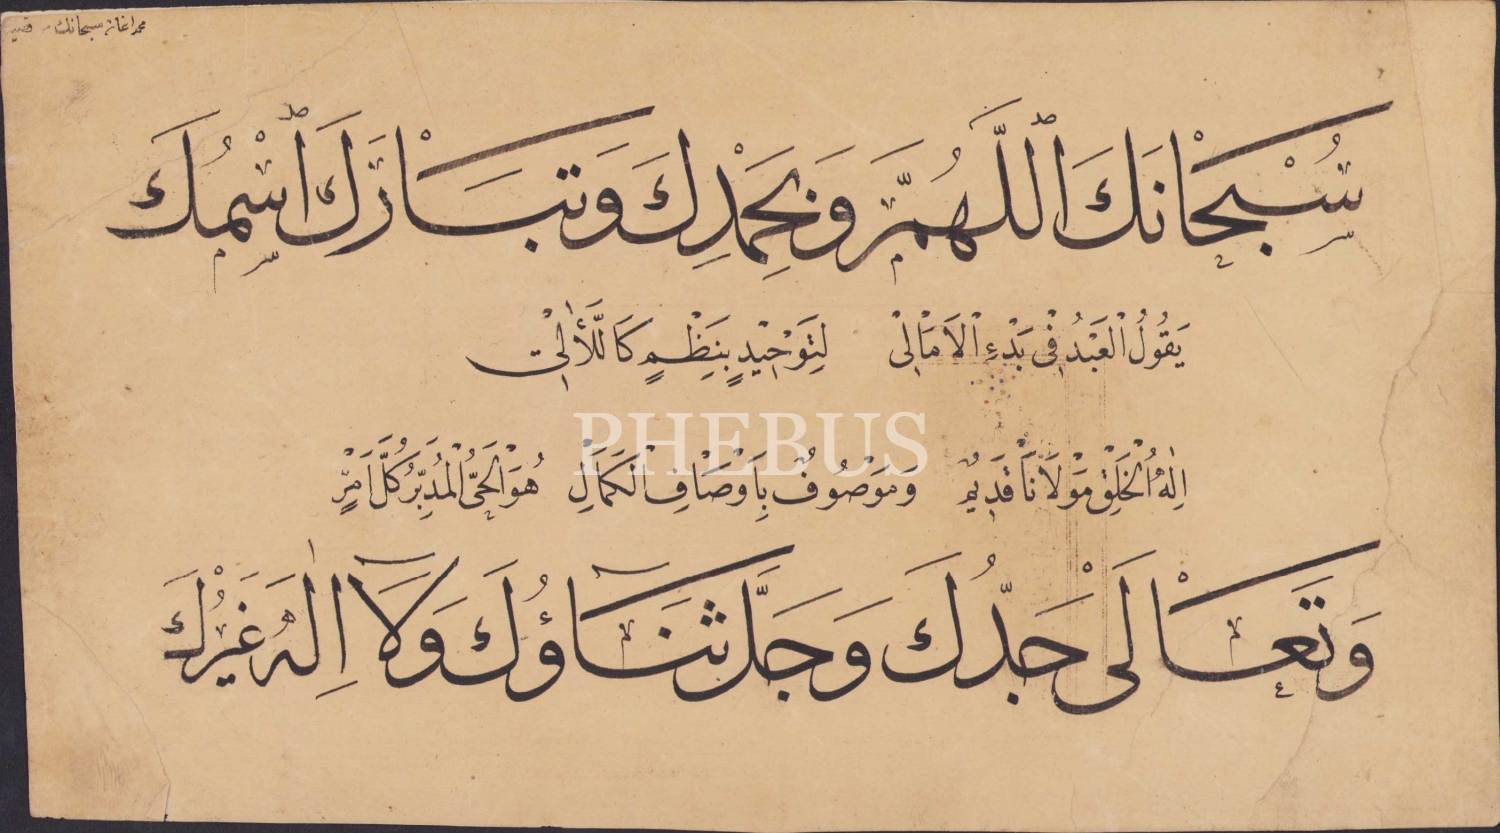 محمد اغانڭ سبحانك
سُبْحَانَكَ اللّٰهُمَّ وَبِحَمْدِكَ وَتَبَارَكَ اسْمُكَ
يَقُولُ الْعَبْدُ فِي بَدْءِ الْاَمَالِي لِتَوْحِيدٍ بِنَظْمٍ كَاللَّآلِي
PHEBUS
اِلٰهُ الْخَلْقِ مَوْلَانَا قَدِيمٌ وَمَوْصُوفٌ بِاَوْصَافِ الْكَمَالِ هُوَ الْحَيُّ الْمُدَبِّرُ كُلَّ اَمْرٍ
وَتَعَالٰى جَدُّكَ وَجَلَّ ثَنَاؤُكَ وَلَا اِلٰهَ غَيْرُكَ